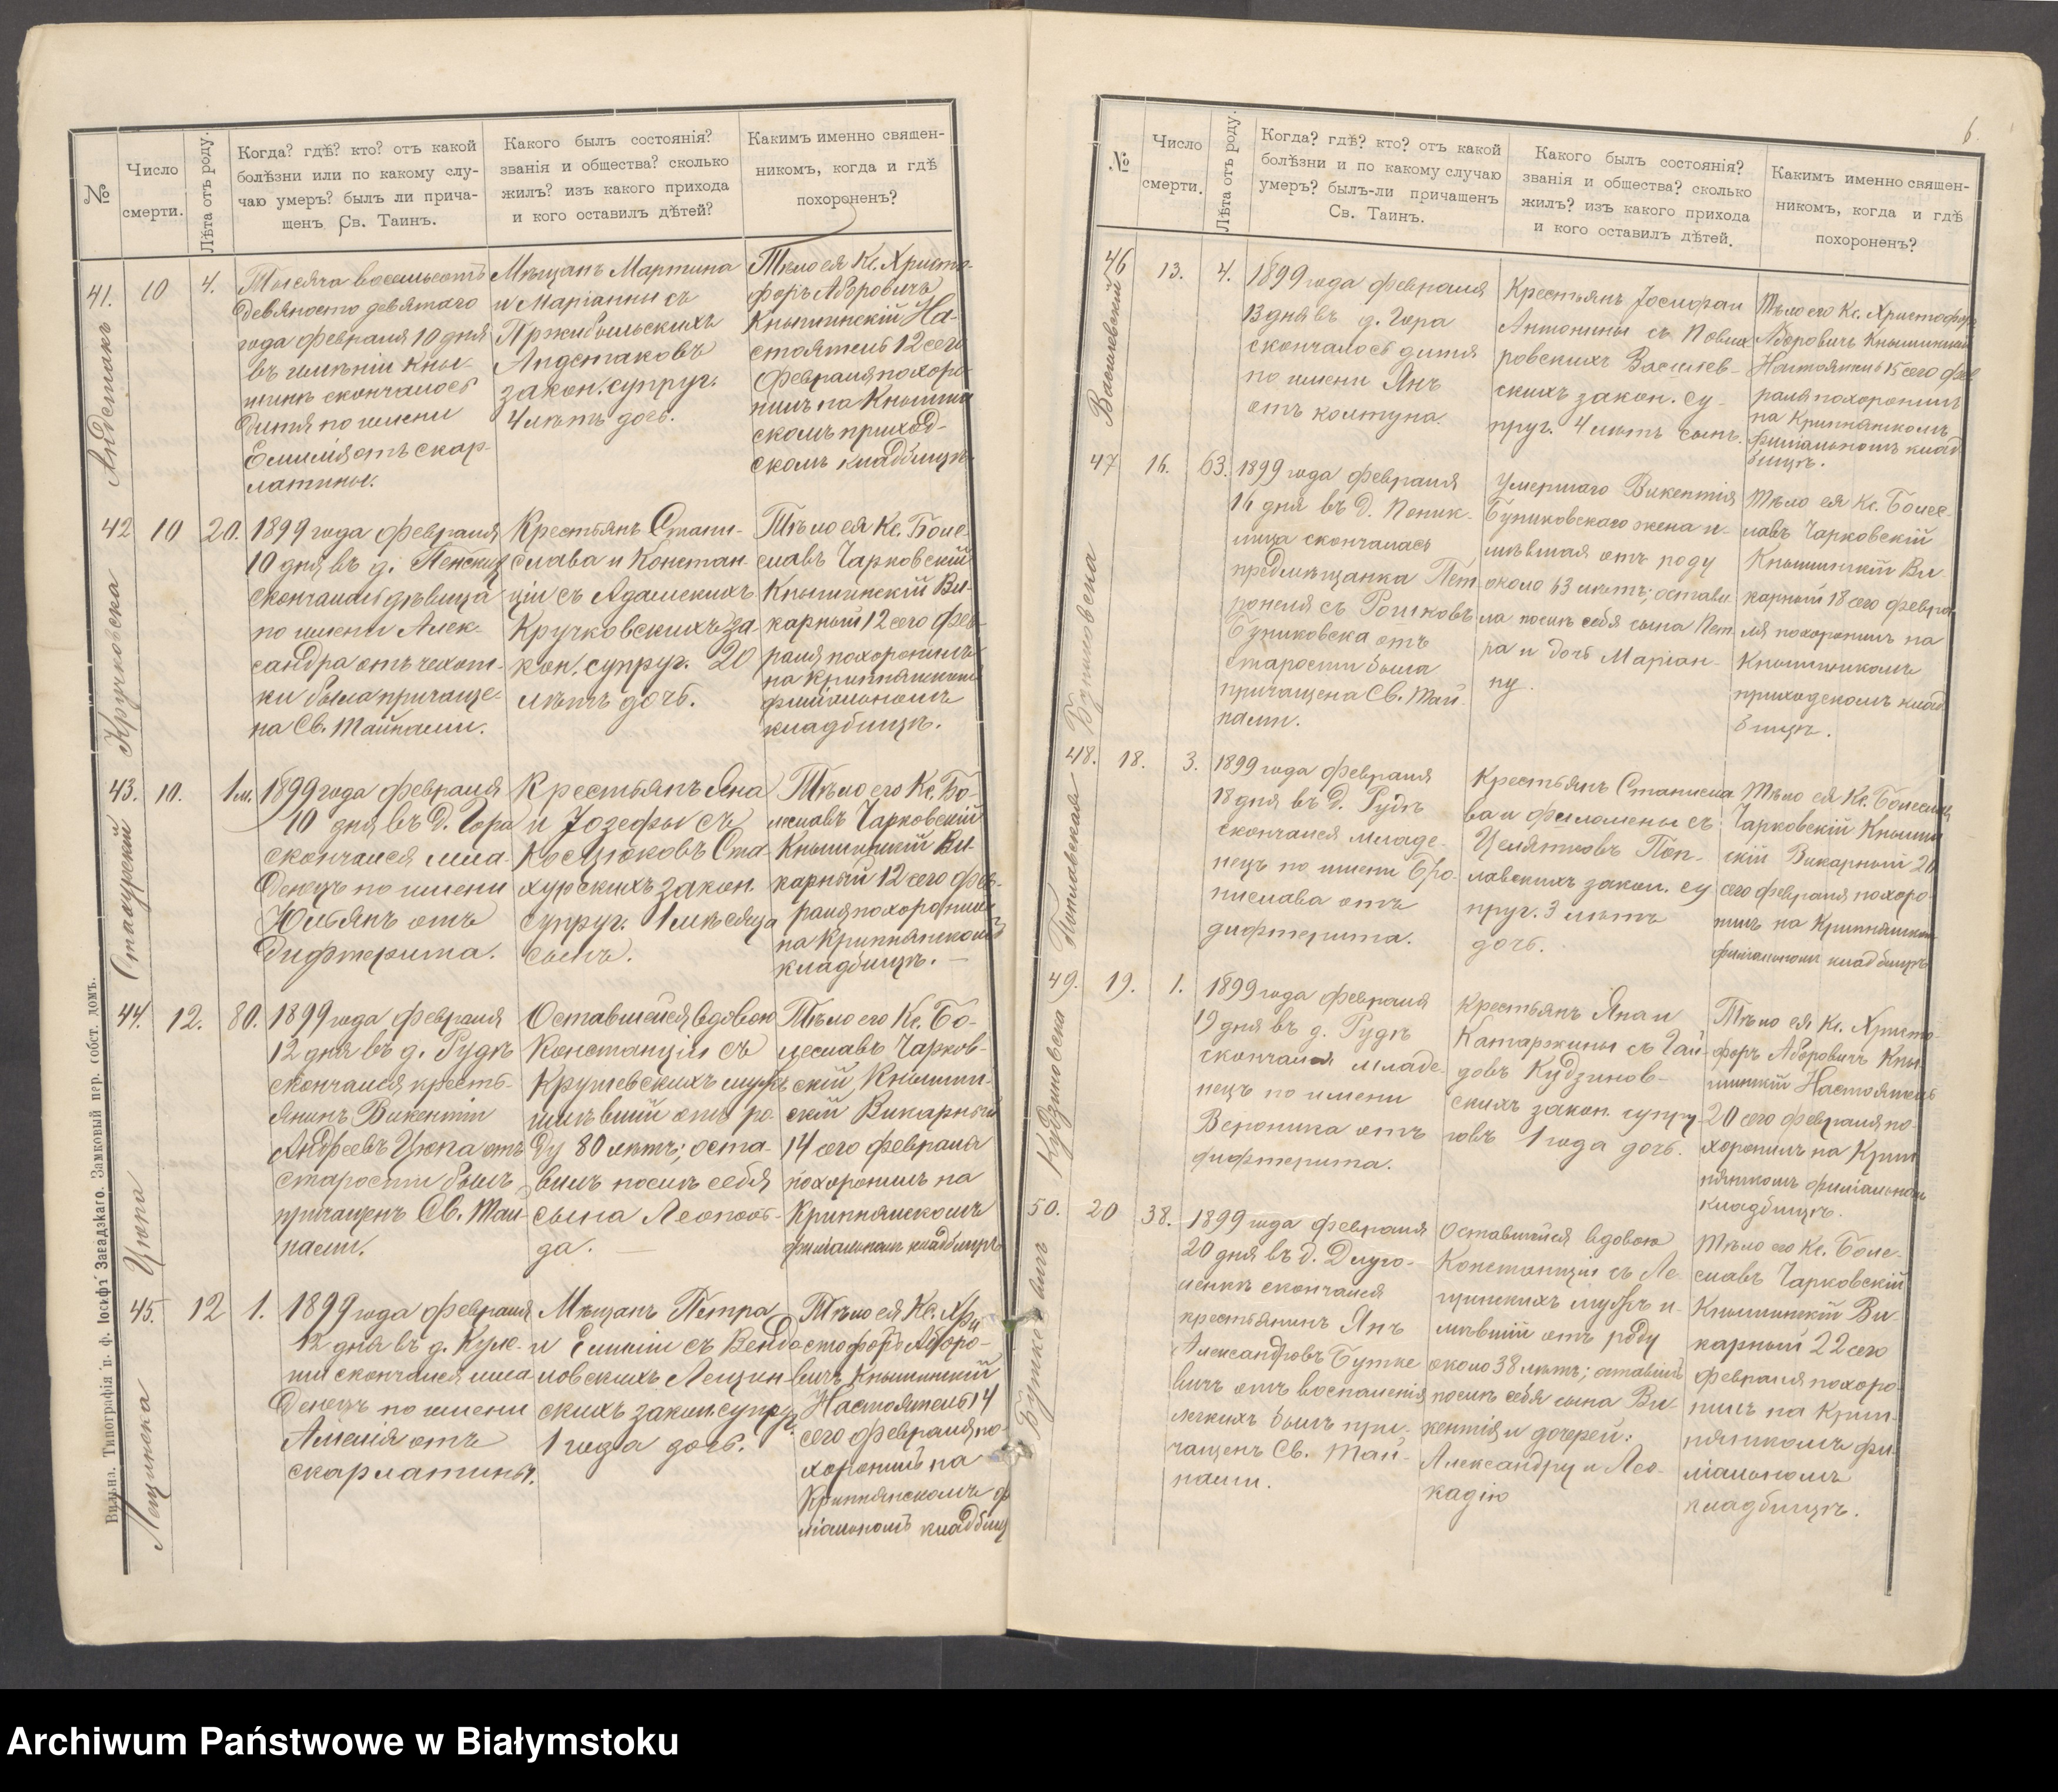 №
Число
смерти.
Лѣта отъ роду.
Когда? гдѣ? кто? отъ какой
болѣзни или по какому слу-
чаю умеръ? былъ ли прича-
щенъ Св. Таинъ.
Какого былъ состоянія?
званія и общества? сколько
жилъ? изъ какого прихода
и кого оставилъ дѣтей?
Какимъ именно священ-
никомъ, когда и гдѣ
похороненъ?
41.
10
4.
Тысяча восемьсотъ
девяносто девятаго
года февраля 10 дня
въ имѣніи Кны-
шинъ скончалось
дитя по имени
Емилія отъ скар-
латины.
Мѣщанъ Мартина
и Маріанны съ
Пржибыльскихъ
закон. супруг.
4 лѣтъ дочь.
Тѣло ея Кс. Христо-
форъ Аборовичъ
Кнышинскій На-
стоятель 12 сего
февраля похоро-
нилъ на Кнышин
скомъ приход-
скомъ кладбищѣ
42
10
20.
Кручковска
1899 года февраля
10 дня въ д.
скончалась дѣвица
по имени Алек-
сандра отъ чахот-
ки была причаще-
на Св. Тайнами.
Крестьянъ Стани-
слава и Констан-
ціи съ Адамскихъ
Кручковскихъ за-
кон. супруг. 20
лѣтъ дочь.
Тѣло ея Кс. Боле-
славъ Чарковскій
Кнышинскій Ви-
карный 12 сего фев-
раля похоронилъ
на Крипнянскомъ
филіальномъ
кладбищѣ.
43.
10.
1 м.
Стахурскій
1899 года февраля
10 дня въ д. Гора
скончался мла-
денецъ по имени
Юльянъ отъ
дифтерита.
Крестьянъ Яна
и Іозефы съ
Косцюковъ Ста-
хурскихъ закон.
супруг. 1 мѣсяца
сынъ.
Тѣло его Кс. Бо-
леславъ Чарковскій
Кнышинскій Ви-
карный 12 сего фев-
раля похоронилъ
на Крипнянскомъ
кладбищѣ. —
44.
12.
80.
Цюпа
1899 года февраля
12 дня въ д. Рудѣ
скончался кресть-
янинъ Викентій
Андреевъ Цюпа отъ
старости былъ
причащенъ Св. Тай-
нами.
Оставшейся вдовою
Констанціи съ
Крушевскихъ мужъ
имѣвшій отъ ро-
ду 80 лѣтъ; оста-
вилъ послѣ себя
сына Леополь-
да. —
Тѣло его Кс. Бо-
леславъ Чарков-
скій Кнышин-
скій Викарный
14 сего февраля
похоронилъ на
Крипнянскомъ
филіальномъ кладбищѣ
45.
12
1.
Лещинска
1899 года февраля
12 дня въ д.
скончался мла
денецъ по имени
Амелія отъ
скарлатины.
Мѣщанъ Петра
и Емиліи съ Вендо
ловскихъ Лещин-
скихъ закон. супруг.
1 года дочь.
Тѣло ея Кс. Хри
стофоръ Аборо-
вичъ Кнышинскій
Настоятель 14
сего февраля по-
хоронилъ на
Крипнянскомъ фи
ліальномъ кладбищ
Вильна. Типографія п. ф. Іосифъ Завадзкаго. Замковый пер. собст. домъ.
6.
№
Число
смерти.
Лѣта отъ роду.
Когда? гдѣ? кто? отъ какой
болѣзни и по какому случаю
умеръ? былъ-ли причащенъ
Св. Таинъ.
Какого былъ состоянія?
званія и общества? сколько
жилъ? изъ какого прихода
и кого оставилъ дѣтей.
Какимъ именно священ-
никомъ, когда и гдѣ
похороненъ?
46
13.
4.
Василевскій
1899 года февраля
13 дня въ д. Гора
скончалось дитя
по имени Янъ
отъ колтуна.
Крестьянъ
Антонины съ
ровскихъ Василев-
скихъ закон. су-
пруг. 4 лѣтъ сынъ.
Тѣло его Кс. Христофоръ
Аборовичъ Кнышинскій
Настоятель 15 сего фев
раля похоронилъ
на Крипнянскомъ
филіальномъ клад
бищѣ.
47
16.
63.
1899 года февраля
16 дня въ д. Пеник-
лица скончалась
предмѣщанка Пет
ронеля съ Рошковъ
отъ
старости была
причащена Св. Тай-
нами.
Умершаго Викентія
жена и-
мѣвшая отъ роду
около 63 лѣтъ; остави-
ла послѣ себя сына Пет
ра и дочь Маріан-
ну.
Тѣло ея Кс.Боле-
славъ Чарковскій
Кнышинскій Ви-
карный 18 сего февра
ля похоронилъ на
Кнышинскомъ
приходскомъ клад
бищѣ.
48.
18.
3.
Поплавская
1899 года февраля
18 дня въ д. Рудѣ
скончался младе-
нецъ по имени Бро-
нислава отъ
дифтерита.
Крестьянъ Станисла
ва и Филомены съ
Поп-
лавскихъ закон. су
пруг. 3 лѣтъ
дочь.
Тѣло ея Кс. Болеславъ
Чарковскій Кнышин
скій Викарный 20
сего февраля похоро-
нилъ на Крипнянском
филіальномъ кладбищѣ
49.
19.
1.
Кудзиновска
1899 года февраля
19 дня въ д. Рудѣ
скончался младе-
нецъ по имени
Вероника отъ
дифтерита.
Крестьянъ Яна и
Катаржины съ Гай-
довъ Кудзинов-
скихъ закон. супру-
говъ 1 года дочь.
Тѣло ея Кс. Христо-
форъ Аборовичъ Кны-
шинскій Настоятель
20 сего февраля по-
хоронилъ на Крип
нянскомъ филіальном
кладбищѣ.
50.
20
38.
Буткевичъ
1899 года февраля
20 дня въ д. Длуго-
ленкѣ скончался
крестьянинъ Янъ
Александровъ Бутке
вичъ отъ воспаленія
легкихъ былъ при-
чащенъ Св. Тай-
нами.
Оставшейся вдовою
Констанціи съ Ле-
щинскихъ мужъ и-
мѣвшій отъ роду
около 38 лѣтъ; оставилъ
послѣ себя сына Ви-
кентія и дочерей:
Александру и Лео-
кадію
Тѣло его Кс. Боле-
славъ Чарковскій
Кнышинскій Ви
карный 22 сего
февраля похоро-
нилъ на Крип-
нянскомъ фи-
ліальномъ
кладбищѣ.
Archiwum Państwowe w Białymstoku